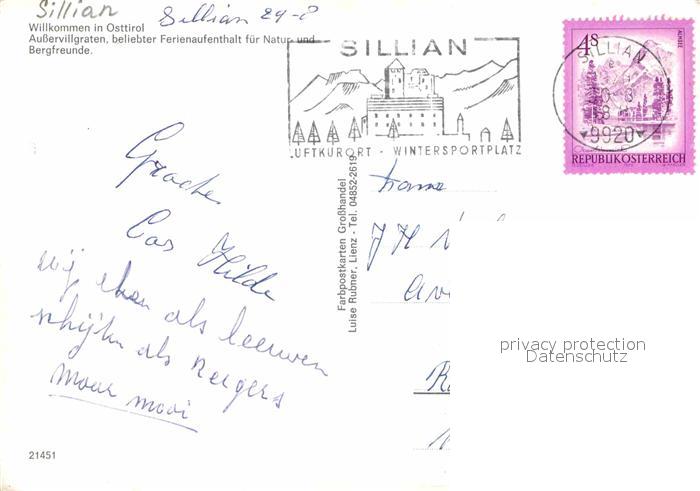 Sillian
Sillian 29-8
Willkommen in Osttirol
Außervillgraten, beliebter Ferienaufenthalt für Natur- und
Bergfreunde.
SILLIAN
LUFTKURORT - WINTERSPORTPLATZ
SILLIAN
9920
4S
ALMSEE
REPUBLIK ÖSTERREICH
Groeten
Cos Hilde
wij eten als leeuwen
schijten als reigers
maar mooi
Farbpostkarten Großhandel
Luise Rubner, Lienz - Tel. 04852-2619
JH
privacy protection
Datenschutz
21451